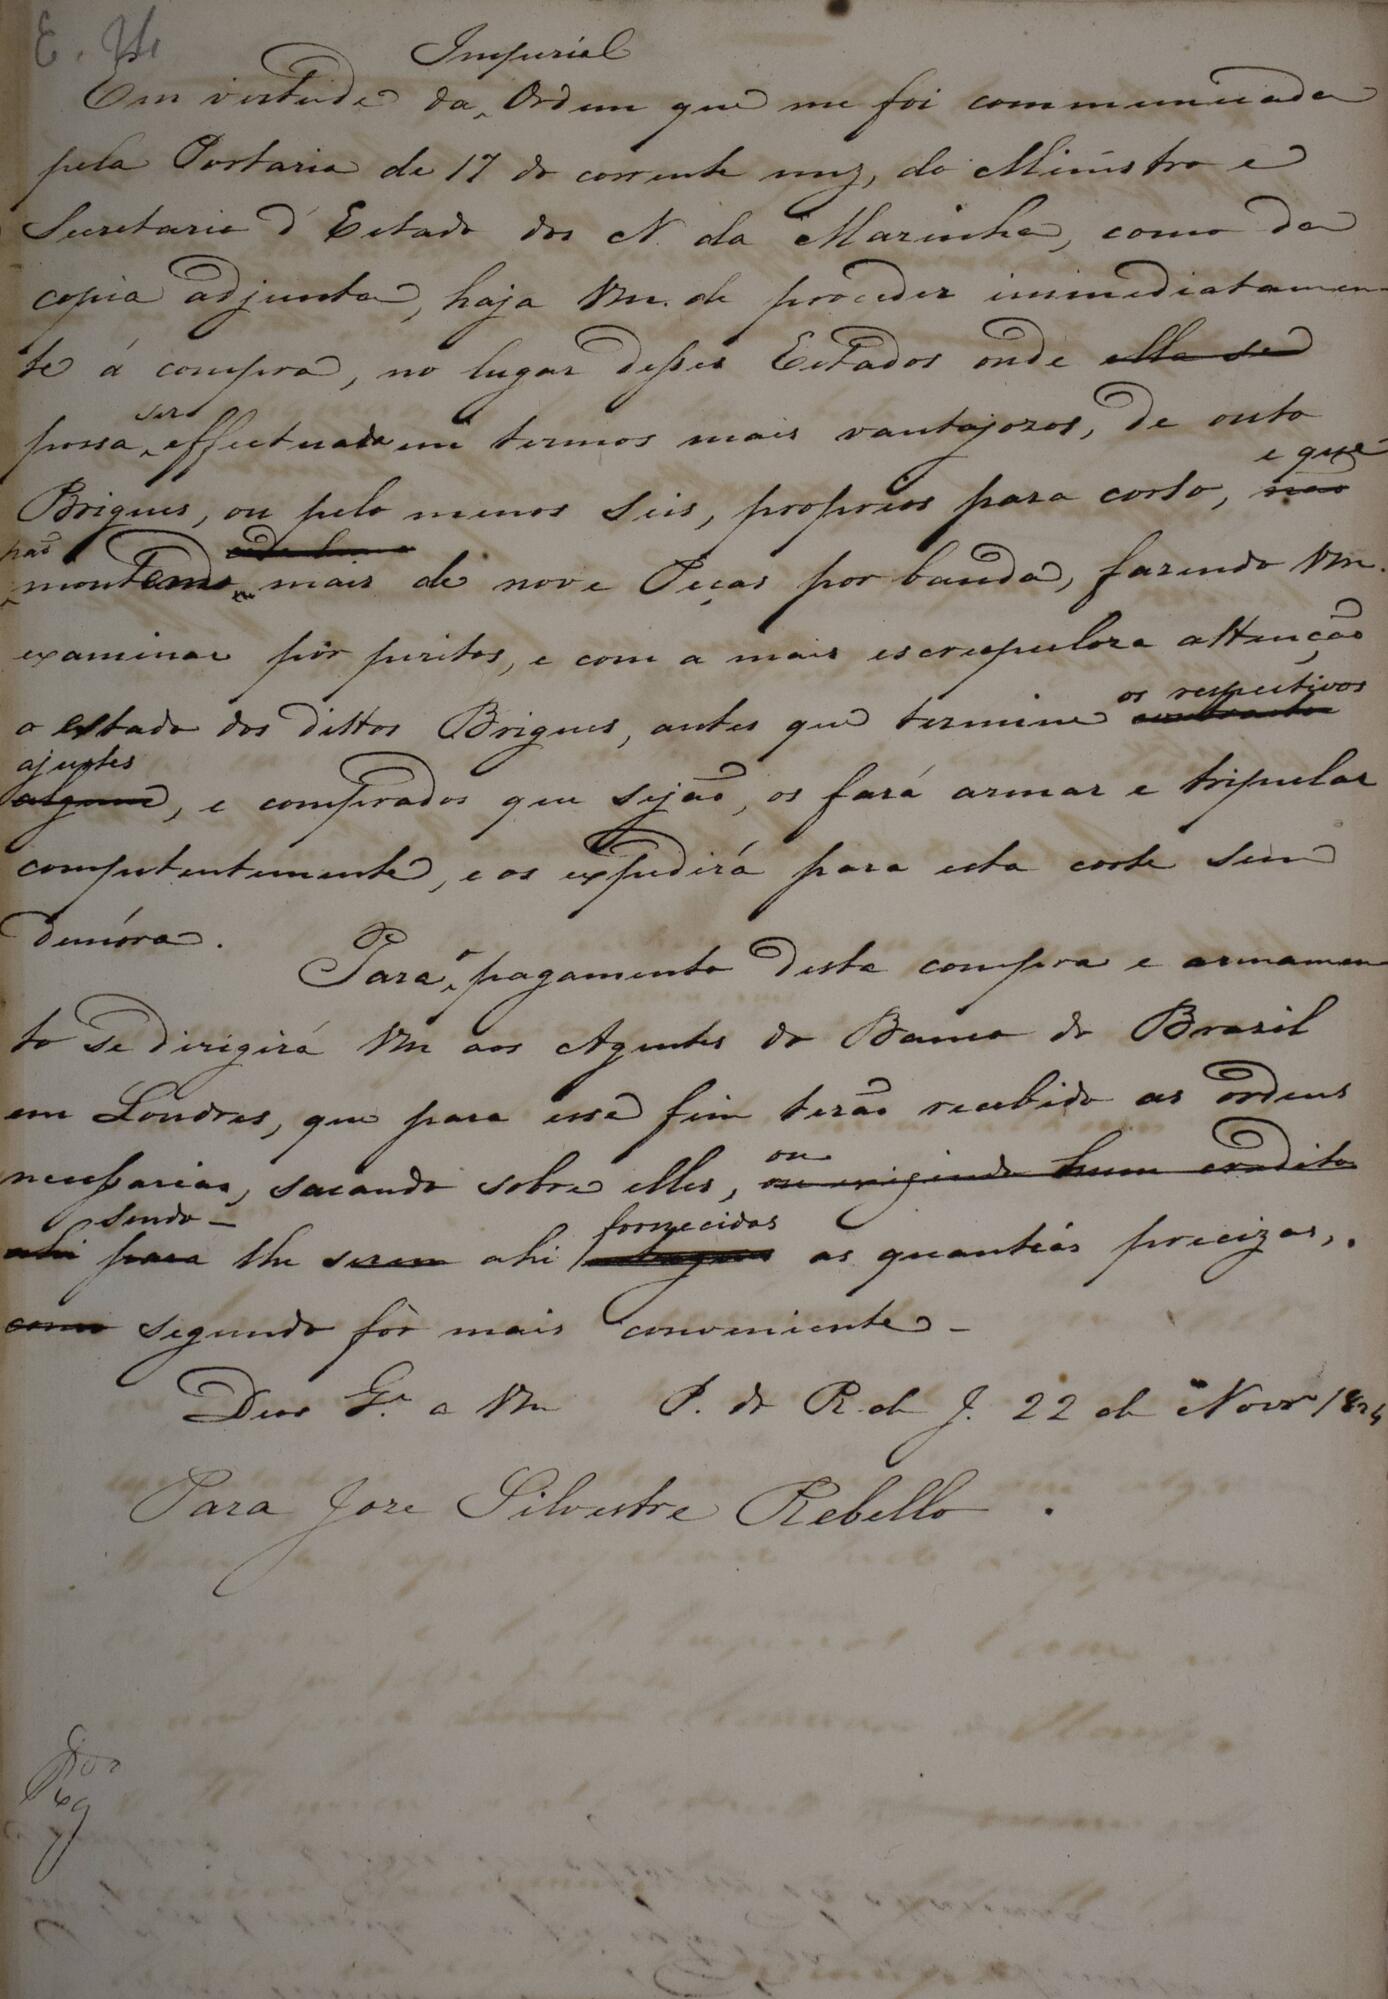 E. U.
Imperial
Em virtude da Ordem que me foi communicada
pela Portaria de 17 do corrente mez, do Ministro e
Secretario d'Estado dos N. da Marinha, como da
copia adjunta, haja Vm. de proceder immediatamen
te á compra, no lugar desses Estados onde ella se
ser
possa effectuada em termos mais vantajozos, de outo
e que
Brigues, ou pelo menos seis, proprios para corso, não
não
montem mais de nove Peças por banda, fazendo Vm.
examinar por peritos, e com a mais escrupuloza attenção
os respectivos
o estado dos dittos Brigues, antes que termine contracto
ajustes
algum, e comprados que sejão, os fará armar e tripular
competentemente, e os expedirá para esta corte sem
demóra.
Para o pagamento desta compra e armamen
to se dirigirá Vm aos Agentes do Banco do Brazil
em Londres, que para esse fim terão recebido as ordens
ou
necessarias, sacando sobre elles, ou exigindo hum credito
sendo fornecidas
ahi para lhe serem ahi entregues as quantias precizas,
como segundo fôr mais conveniente
Deos G.e a Vm P. do R. de J. 22 de Novr 1824
Para Joze Silvestre Rebello.